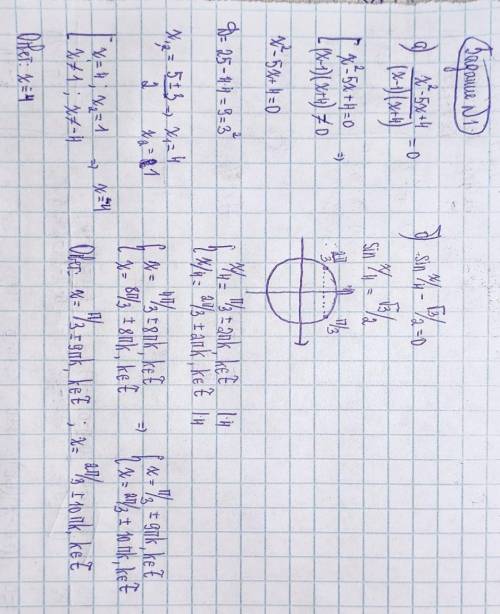 Задание №1.
а) x²-5x+4/(x-1)(x+4) = 0
[x²-5x+4=0
(x-1)(x+4) ≠ 0 ⇒
x²-5x+4=0
D = 25-4·4 = 9 = 3²
x₁,₂ = 5±3/2 ⇒ x₁ = 4
x₂ = 1
[x₁=4; x₂=1
x≠1; x≠-4 ⇒ x=4
Ответ: x=4
б) sin x/4 - √3/2 = 0
sin x/4 = √3/2
2π/3
π/3
{x/4 = π/3 ± 2πk, k∈Z |·4
x/4 = 2π/3 ± 2πk, k∈Z |·4
{x = 4π/3 ± 8πk, k∈Z
x = 8π/3 ± 8πk, k∈Z ⇒
{x = π/3 ± 9πk, k∈Z
x = 2π/3 ± 10πk, k∈Z
Ответ: x = π/3 ± 9πk, k∈Z ; x = 2π/3 ± 10πk, k∈Z